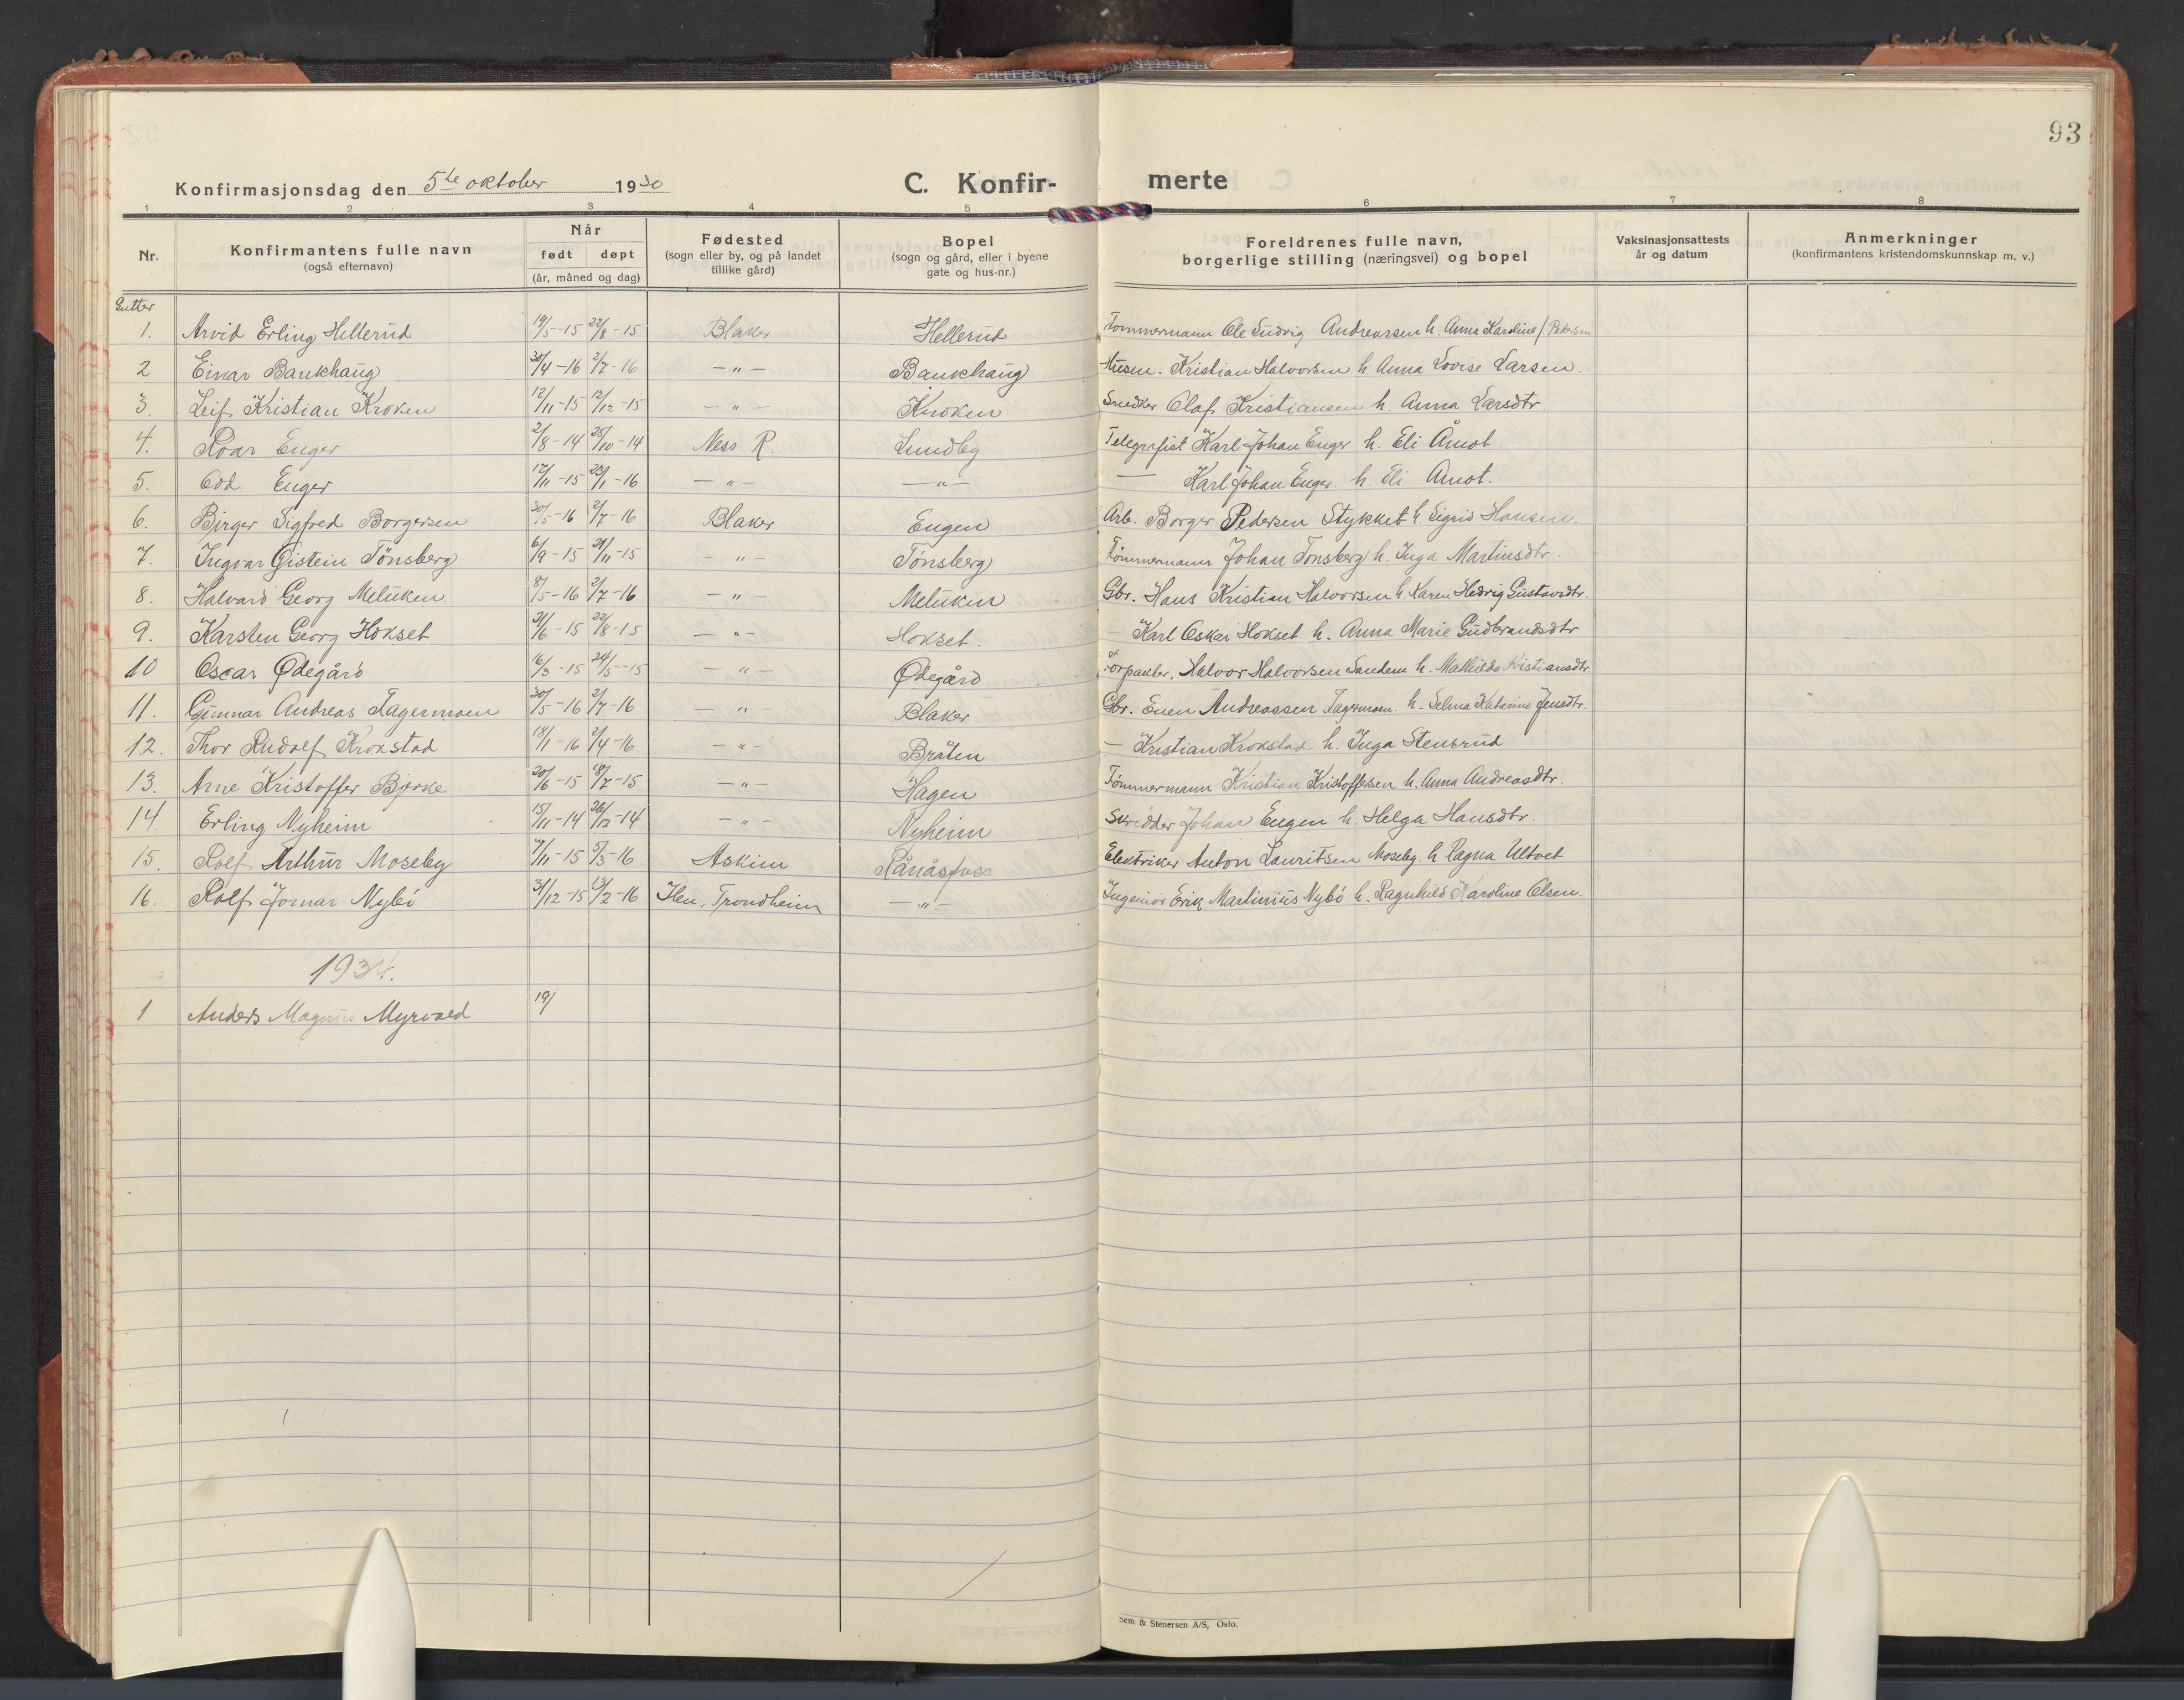 93
Konfirmasjonsdag den 5te oktober 1930 C. Konfir- merte
1 2 3 4 5 6 7 8
Nr. Konfirmantens fulle navn (også efternavn) Når født døpt (år, måned og dag) Fødested (sogn eller by, og på landet tillike gård) Bopel (sogn og gård, eller i byene gate og hus-nr.) Foreldrenes fulle navn, borgerlige stilling (næringsvei) og bopel Vaksinasjonsattests år og datum Anmerkninger (konfirmantens kristendomskunnskap m. v.)
Gutter
1. Arvid Erling Hellerud 19/5-15 22/8-15 Blaker Hellerud Tømmermann Ole Ludvig Andreassen h. Anna Karoline / Pedersen
2 Einar Baukhaug 30/4-16 2/7-16 — " — Baukhaug Husm. Kristian Halvorsen h. Anna Lovise Larsen
3. Leif Kristian Kroken 12/11-15 12/12-15 — " — Kroken Snedker Olaf Kristiansen h. Anna Larsdtr.
4. Roar Enger 2/8-14 25/10-14 Nes R. Lundby Telegrafist Karl Johan Enger h. Eli Åmot.
5. Odd Enger 17/11-15 /1-16 — " — — " — — Karl Johan Enger h. Eli Amot.
6. Birger Sigfred Borgersen 30/5-16 2/7-16 Blaker Engen Arb. Borger Pedersen Stykket h. Sigrid Hansen.
7. Ingvar Øistein Tönsberg 6/9-15 21/11-15 — " — Tönsberg Tømmermann Johan Tønsberg h. Inga Martinsdtr.
8. Halvard Georg Melüken 8/5-16 2/7-16 — " — Melüken Gbr. Hans Kristian Halvorsen h. Karen Hedvig Gustavsdtr.
9. Karsten Georg Hokset /6-15 22/8-15 — " — Hokset. — Karl Oskar Hokset h. Anna Marie Gudbrandsdtr
10 Oscar Ødegård 16/3-15 24/5-15 — " — Ødegård Forpakter. Halvor Halvorsen Sandem h. Mathilde Kristiansdtr
11. Gunnar Andreas Fagermoen 30/5-16 2/7-16 — " — Blaker Gbr. Even Andreassen Fagermoen. h. Selma Katarine Jensdtr.
12. Thor Rudolf Krokstad 18/1-16 2/4-16 — " — Bråten — Kristian Krokstad h. Inga Stensrud
13. Arne Kristoffer Bjerke 20/6-15 18/7-15 — " — Hagen Tømmermann Kristian Kristoffersen h. Anna Andreasdtr.
14. Erling Nyheim 15/11-14 26/12-14 — " — Nyheim Skredder Johan Engen h. Helga Hansdtr.
15. Rolf Arthur Moseby 7/11-15 5/3-16 Askim Rånåsfoss Elektriker Anton Lauritsen Moseby. h Ragna Ultvet
16. Rolf Jomar Nybö 31/12-15 13/2-16 Ilen, Trondheim — " — Ingeniör Erik Martinius Nybö h. Ragnhild Karoline Olsen.
1934.
1 Anders Magnus Myrvold 19/
Sem & Stenersen A/S, Oslo.